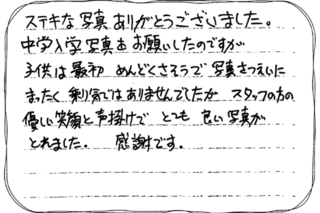 ステキな写真ありがとうございました。
中学入学写真をお願いしたのですが
子供は最初 めんどくさそうで 写真さつえいに
まったく 乗り気ではありませんでしたが スタッフの方の
優しい笑顔と声掛けで とても 良い写真が
とれました。 感謝です。